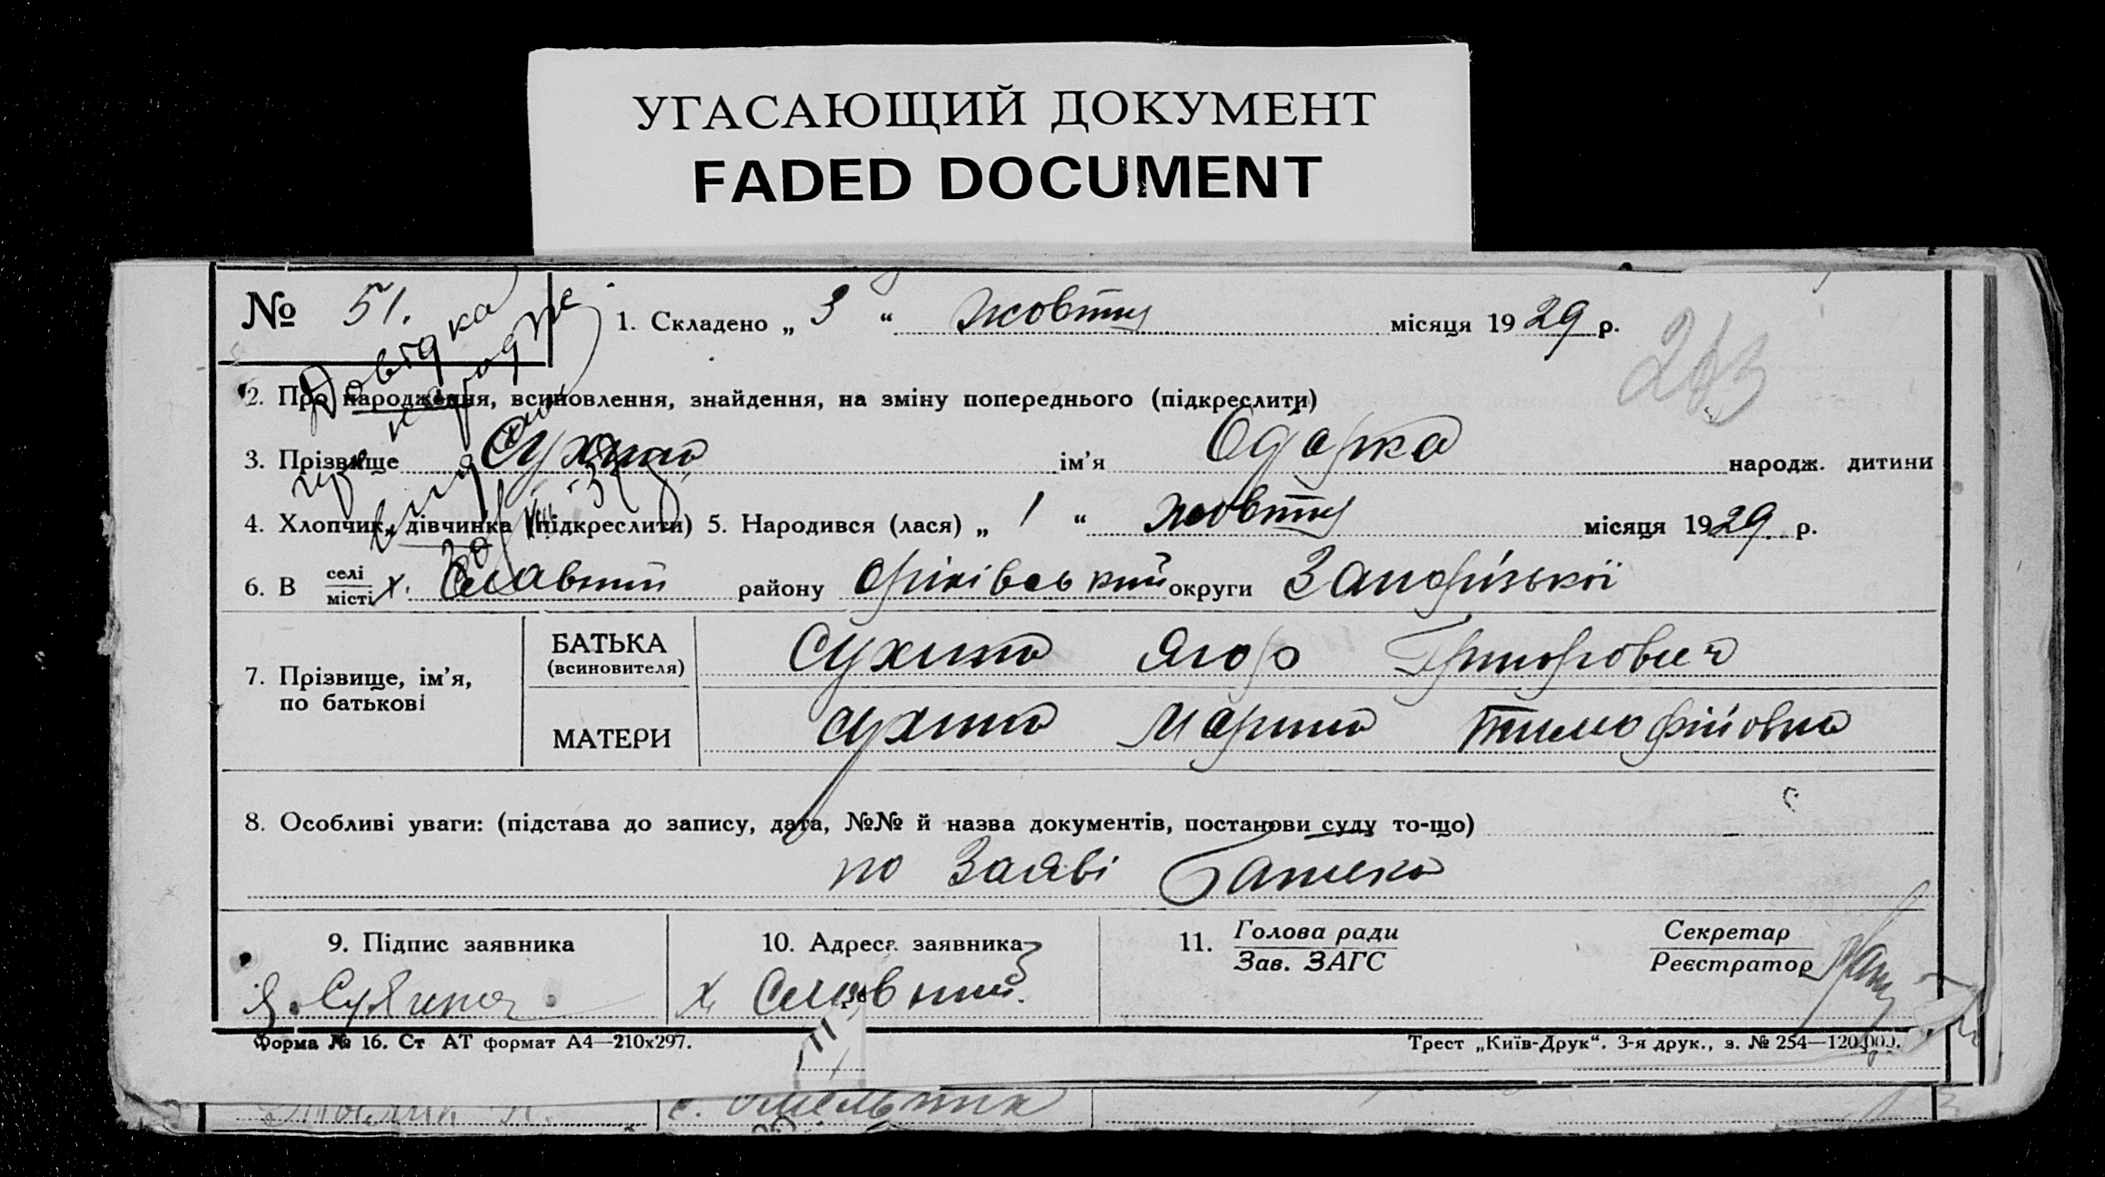 УГАСАЮЩИЙ ДОКУМЕНТ
FADED DOCUMENT
№ 51.
1. Складено „ 3 “ жовтня місяця 1929 р.
263
Довідка
2. Про народження, всиновлення, знайдення, на зміну попереднього (підкреслити)
3. Прізвище Сухина ім’я Одарка народж. дитини
4. Хлопчик, дівчинка (підкреслити) 5. Народився (лася) „ 1 “ жовтня місяця 1929 р.
6. В селі місті х. Славний району Оріхівський округи Запорізької
7. Прізвище, ім’я, по батькові
БАТЬКА (всиновителя) Сухина Ягор Григорович
МАТЕРИ Сухина Марина Тимофійовна
8. Особливі уваги: (підстава до запису, дата, №№ й назва документів, постанови суду то-що)
по Заяві Батька
9. Підпис заявника
10. Адреса заявника
11. Голова ради Зав. ЗАГС
Секретар Реєстратор
Я. Сухина
х Славний.
Форма № 16. Ст АТ формат А4—210х297.
Трест „Київ-Друк“. 3-я друк., з. № 254—120.000.
с. Омельник